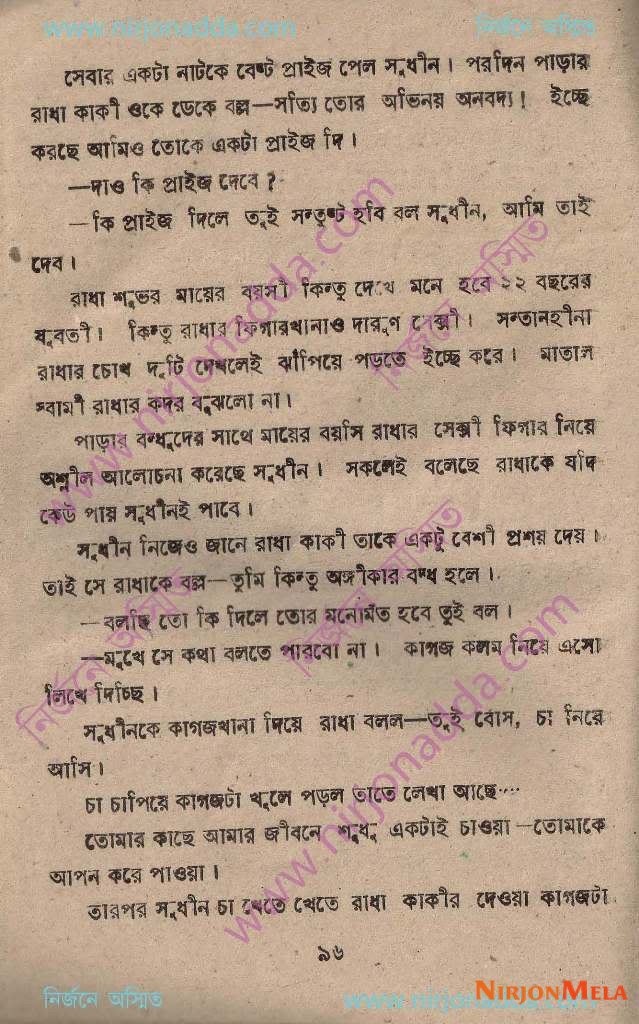 www.nirjonadda.com নির্জনে অস্মিত
সেবার একটা নাটকে বেষ্ট প্রাইজ পেল সুধীন। পরদিন পাড়ার
রাধা কাকী ওকে ডেকে বল্ল—সত্যি তোর অভিনয় অনবদ্য! ইচ্ছে
করছে আমিও তোকে একটা প্রাইজ দি।
—দাও কি প্রাইজ দেবে?
—কি প্রাইজ দিলে তুই সন্তুষ্ট হবি বল সুধীন, আমি তাই
দেব।
রাধা শুভর মায়ের বয়সী কিন্তু দেখে মনে হবে ২২ বছরের
যুবতী। কিন্তু রাধার ফিগারখানাও দারুণ সেক্সী। সন্তানহীনা
রাধার চোখ দুটি দেখলেই ঝাঁপিয়ে পড়তে ইচ্ছে করে। মাতাল
স্বামী রাধার কদর বুঝলো না।
পাড়ার বন্ধুদের সাথে মায়ের বয়সি রাধার সেক্সী ফিগার নিয়ে
অশ্লীল আলোচনা করেছে সুধীন। সকলেই বলেছে রাধাকে যদি
কেউ পায় সুধীনই পাবে।
সুধীন নিজেও জানে রাধা কাকী তাকে একটু বেশী প্রশ্রয় দেয়।
তাই সে রাধাকে বল্ল—তুমি কিন্তু অঙ্গীকার বদ্ধ হলে।
—বলছি তো কি দিলে তোর মনোমত হবে তুই বল।
—মুখে সে কথা বলতে পারবো না। কাগজ কলম নিয়ে এসো
লিখে দিচ্ছি।
সুধীনকে কাগজখানা দিয়ে রাধা বলল—তুই বোস, চা নিয়ে
আসি।
চা চাপিয়ে কাগজটা খুলে পড়ল তাতে লেখা আছে····
তোমার কাছে আমার জীবনে শুধু একটাই চাওয়া—তোমাকে
আপন করে পাওয়া।
তারপর সুধীন চা খেতে খেতে রাধা কাকীর দেওয়া কাগজটা
৯৬
নির্জনে অস্মিত www.nirjonadda.com
NIRJONMELA
www.nirjonadda.com
নির্জনে অস্মিত
নির্জনে অস্মিত
নির্জনে অস্মিত
www.nirjonadda.com